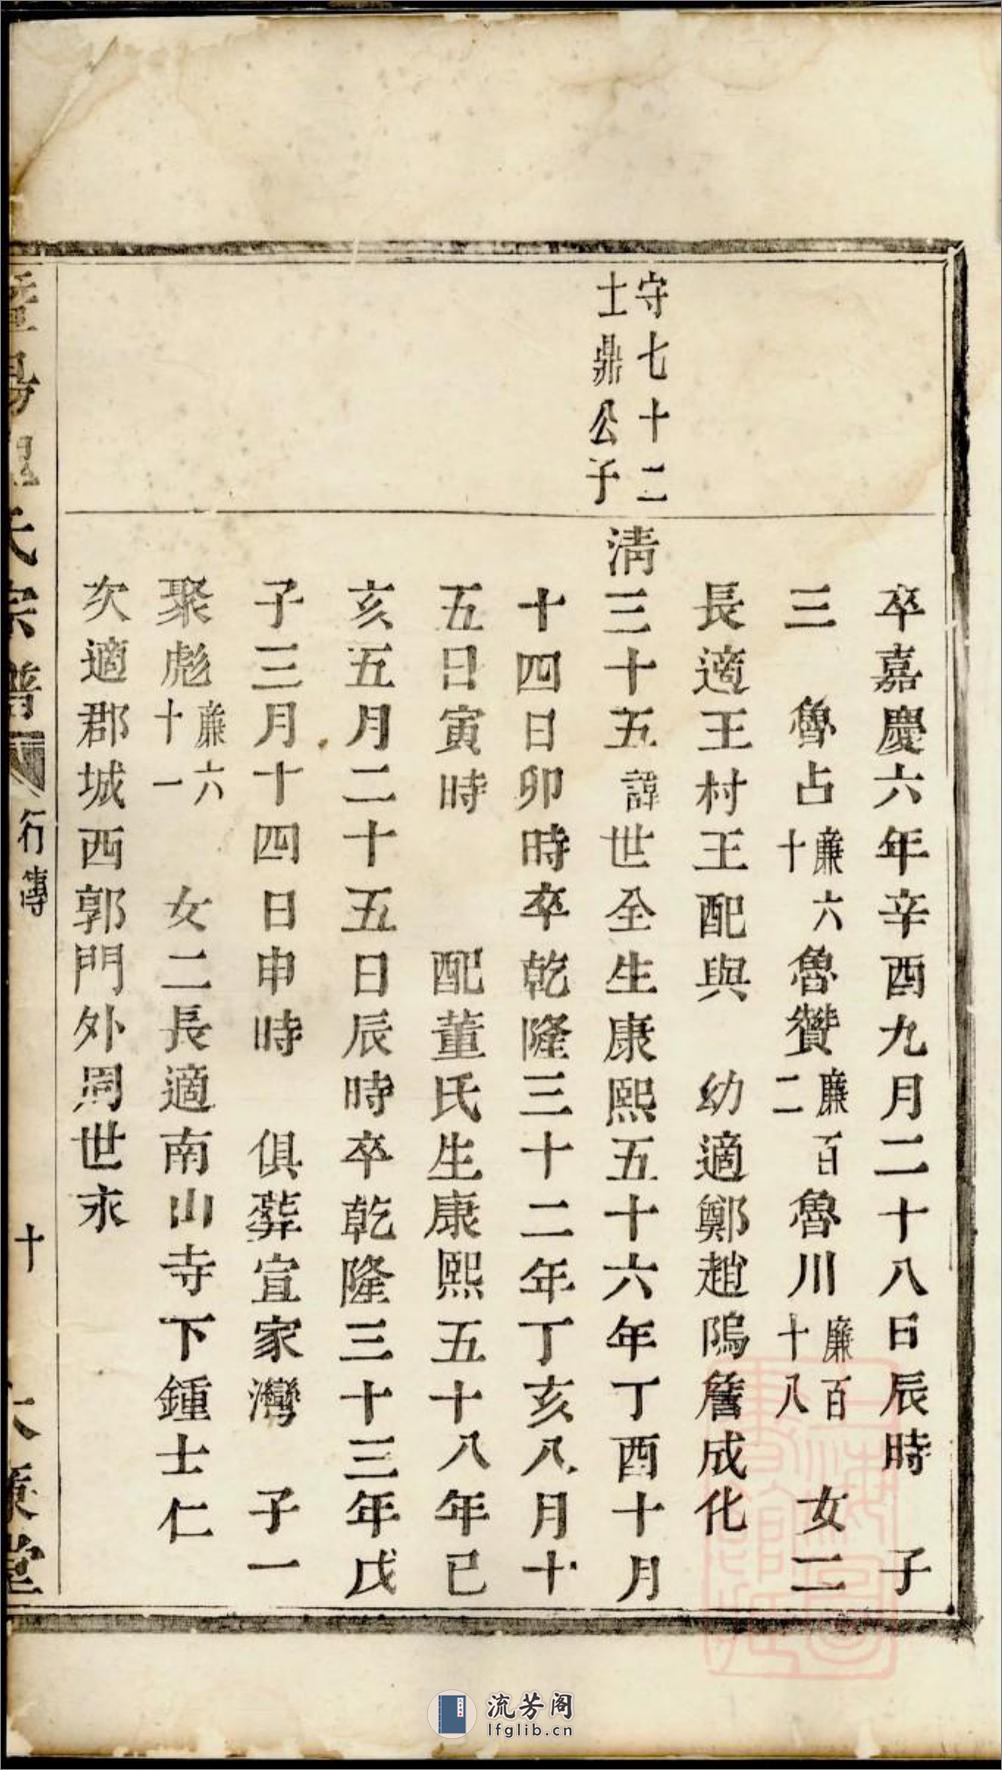 卒嘉慶六年辛酉九月二十八日辰時 子
三 魯占廉六十 魯贊廉百二 魯川廉百十八 女二
長適王村王配與 幼適鄭趙隖詹成化
守七十二
士鼎公子
清三十五諱世全生康熙五十六年丁酉十月
十四日卯時卒乾隆三十二年丁亥八月十
五日寅時 配董氏生康熙五十八年己
亥五月二十五日辰時卒乾隆三十三年戊
子三月十四日申時 俱葬宣家灣 子一
聚彪廉六十一 女二長適南山寺下鍾士仁
次適郡城西郭門外周世永
氏宗譜 行傳 十 堂
流芳阁
lfglib.cn